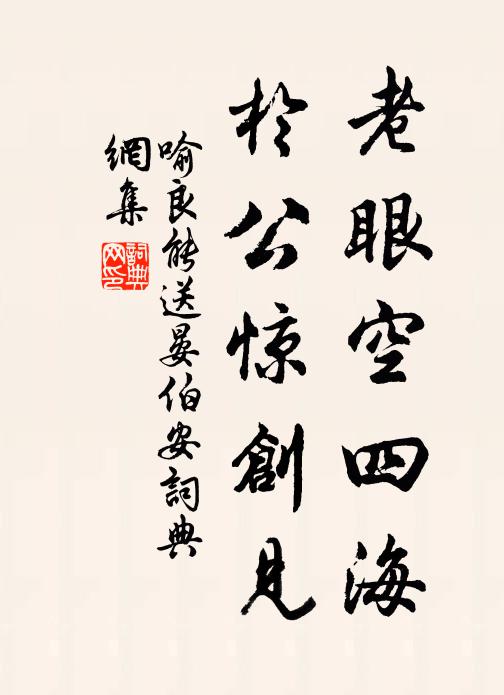 老眼空四海
於公惊創見
喻良能送晏伯安詞典
網集
詞典
网印